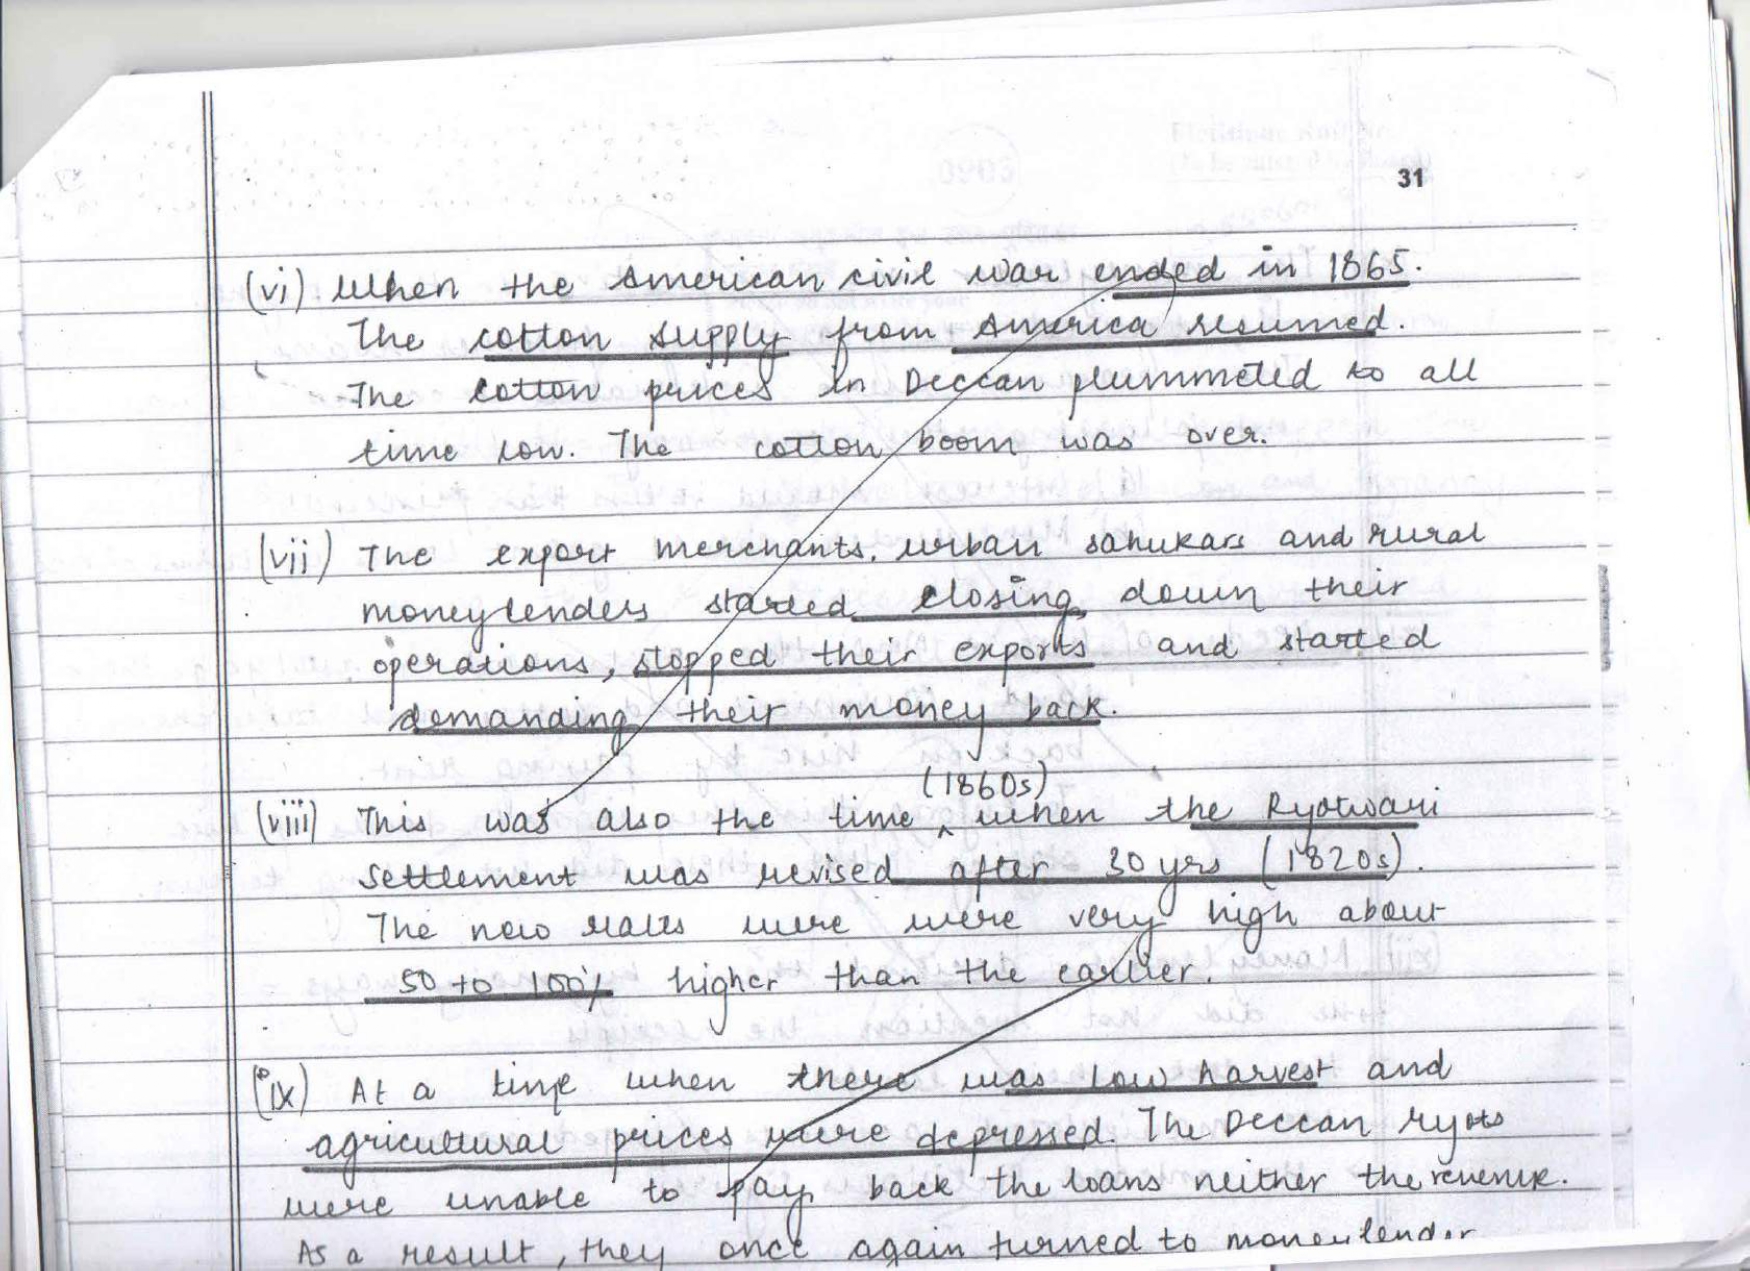 31
(vi) When the American civil war ended in 1865.
The cotton supply from America resumed.
The cotton prices in Deccan plummeted to all
time low. The cotton boom was over.
(vii) The export merchants, urban sahukars and rural
moneylenders started closing down their
operations, stopped their exports and started
demanding their money back.
(1860s)
(viii) This was also the time ^ when the Ryotwari
Settlement was revised after 30 yrs (1820s).
The new rates were were very high about
50 to 100% higher than the earlier.
(ix) At a time when there was low harvest and
agricultural prices were depressed. The Deccan ryots
were unable to pay back the loans neither the revenue.
As a result, they once again turned to moneylender